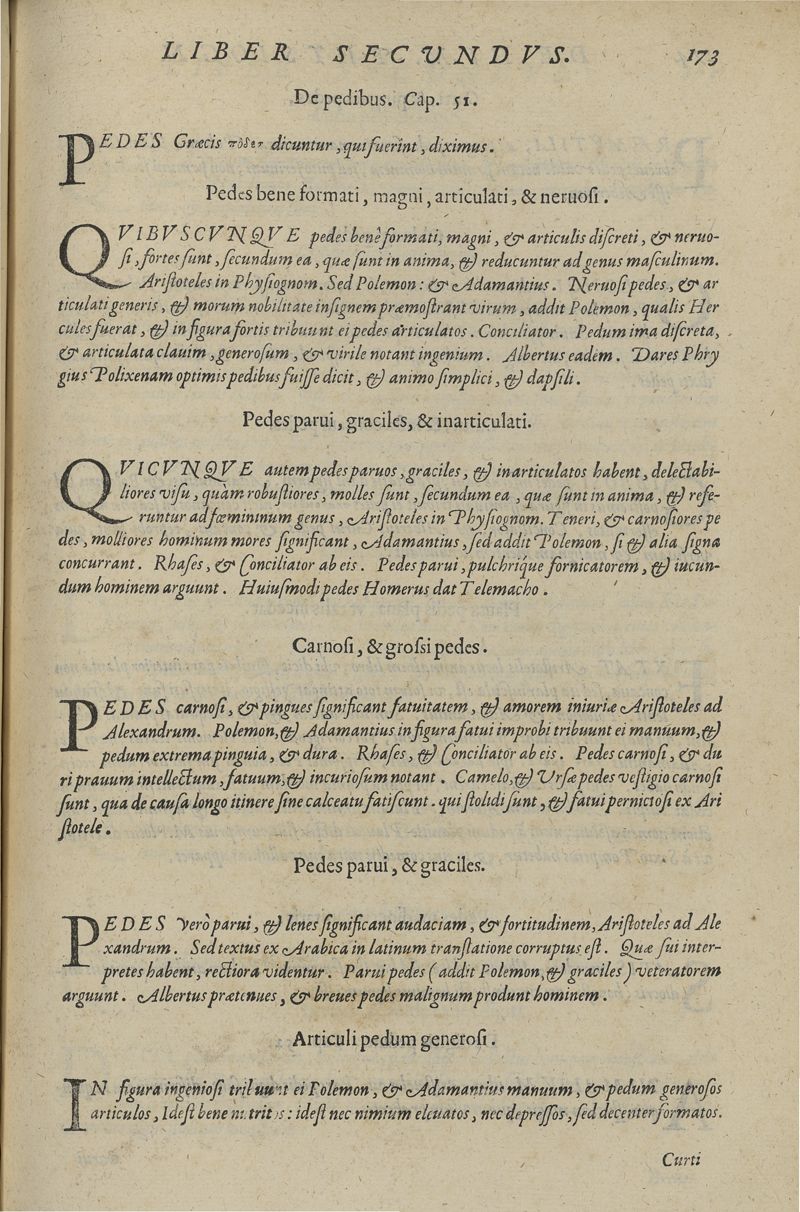 LIBER SECVNDVS. 173
De pedibus. Cap. 51.
PEDES Græcis πόδες dicuntur, qui fuerint, diximus.
Pedes bene formati, magni, articulati, & neruoſi.
QVIBVSCVNQVE pedes benè formati, magni, & articulis diſcreti, & neruo-
ſi, fortes ſunt, ſecundum ea, quæ ſunt in anima, & reducuntur ad genus maſculinum.
Ariſtoteles in Phyſiognom. Sed Polemon: & Adamantius. Neruoſi pedes, & ar
ticulati generis, & morum nobilitate inſignem præmoſtrant virum, addit Polemon, qualis Her
cules fuerat, & in figura fortis tribuunt ei pedes articulatos. Conciliator. Pedum ima diſcreta,
& articulata clauim, generoſum, & virile notant ingenium. Albertus eadem. Dares Phry
gius Polixenam optimis pedibus fuiſſe dicit, & animo ſimplici, & dapſili.
Pedes parui, graciles, & inarticulati.
QVICVNQVE autem pedes paruos, graciles, & inarticulatos habent, delectabi-
liores viſu, quàm robuſtiores, molles ſunt, ſecundum ea, quæ ſunt in anima, & refe-
runtur ad fœmininum genus, Ariſtoteles in Phyſiognom. Teneri, & carnoſiores pe
des, molliores hominum mores ſignificant, Adamantius, ſed addit Polemon, ſi & alia ſigna
concurrant. Rhaſes, & Conciliator ab eis. Pedes parui, pulchrique fornicatorem, & iucun-
dum hominem arguunt. Huiuſmodi pedes Homerus dat Telemacho.
Carnoſi, & groſsi pedes.
PEDES carnoſi, & pingues ſignificant fatuitatem, & amorem iniuriæ Ariſtoteles ad
Alexandrum. Polemon, & Adamantius in figura fatui improbi tribuunt ei manuum, &
pedum extrema pinguia, & dura. Rhaſes, & Conciliator ab eis. Pedes carnoſi, & du
ri prauum intellectum, fatuum, & incurioſum notant. Camelo, & Vrſæ pedes veſtigio carnoſi
ſunt, qua de cauſa longo itinere ſine calceatu fatiſcunt. qui ſtolidi ſunt, & fatui pernicioſi ex Ari
ſtotele.
Pedes parui, & graciles.
PEDES verò parui, & lenes ſignificant audaciam, & fortitudinem, Ariſtoteles ad Ale
xandrum. Sed textus ex Arabica in latinum tranſlatione corruptus eſt. Quæ ſui inter-
pretes habent, rectiora videntur. Parui pedes (addit Polemon, & graciles) veteratorem
arguunt. Albertus prætenues, & breues pedes malignum produnt hominem.
Articuli pedum generoſi.
IN figura ingenioſi tribuunt ei Polemon, & Adamantius manuum, & pedum generoſos
articulos, Ideſt bene nutritos: ideſt nec nimium eleuatos, nec depreſſos, ſed decenter formatos.
Curti